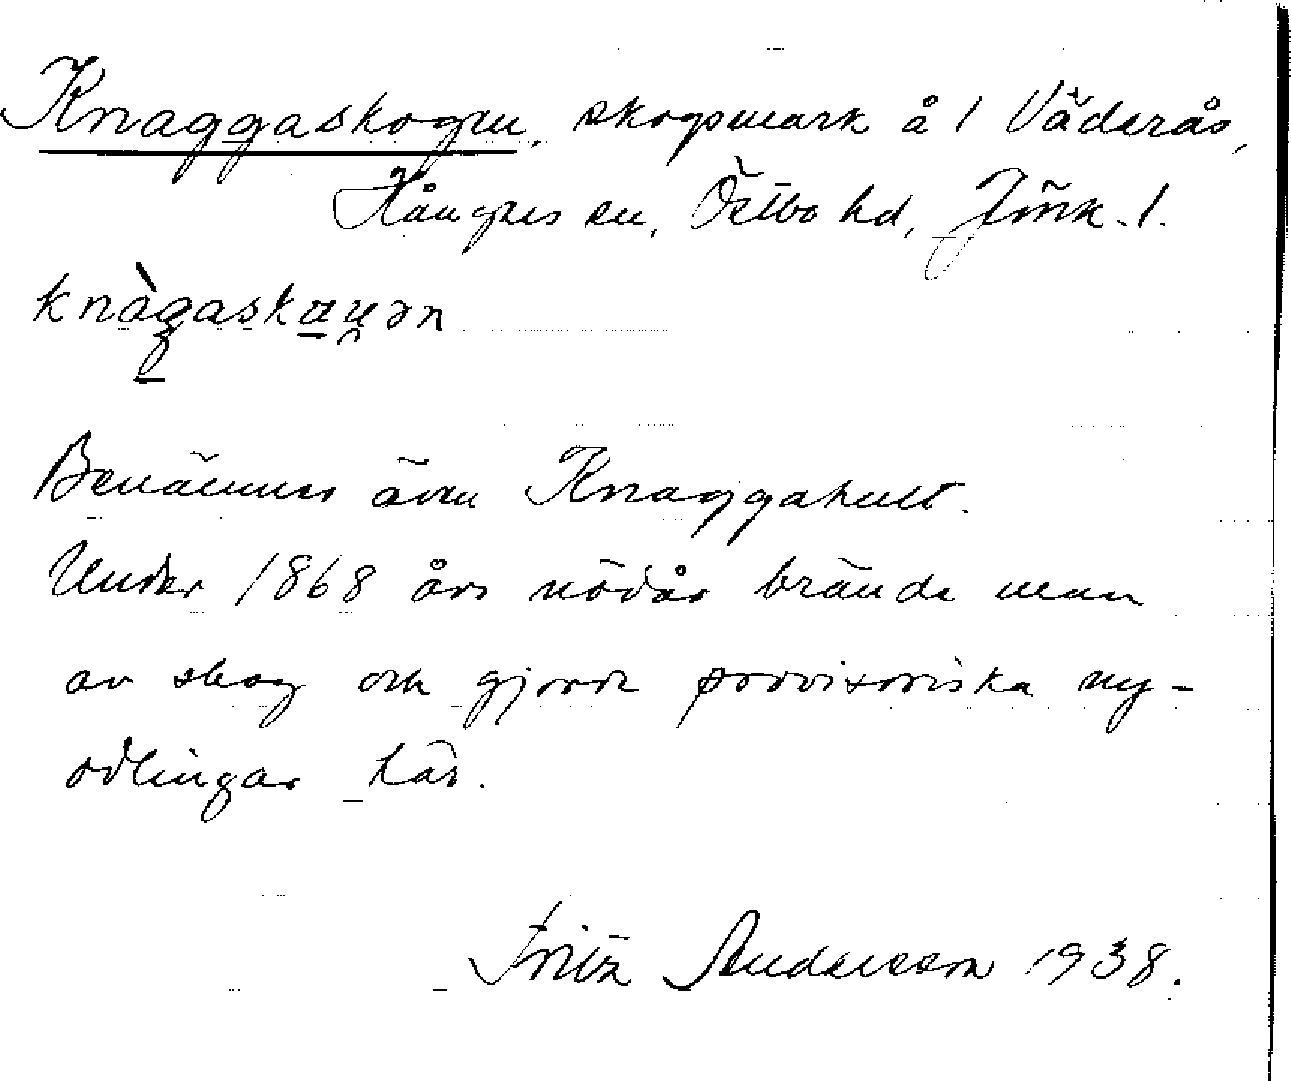 Knaggaskogen, skogsmark å 1 Väderås,
Hångers sn, Östbo hd, Jönk. l.
knàgaskauən
Benämnes även Knaggahult.
Under 1868 års nödår brände man
av skog och gjorde provisoriska ny-
odlingar här.
Fritz Andersson 1938.